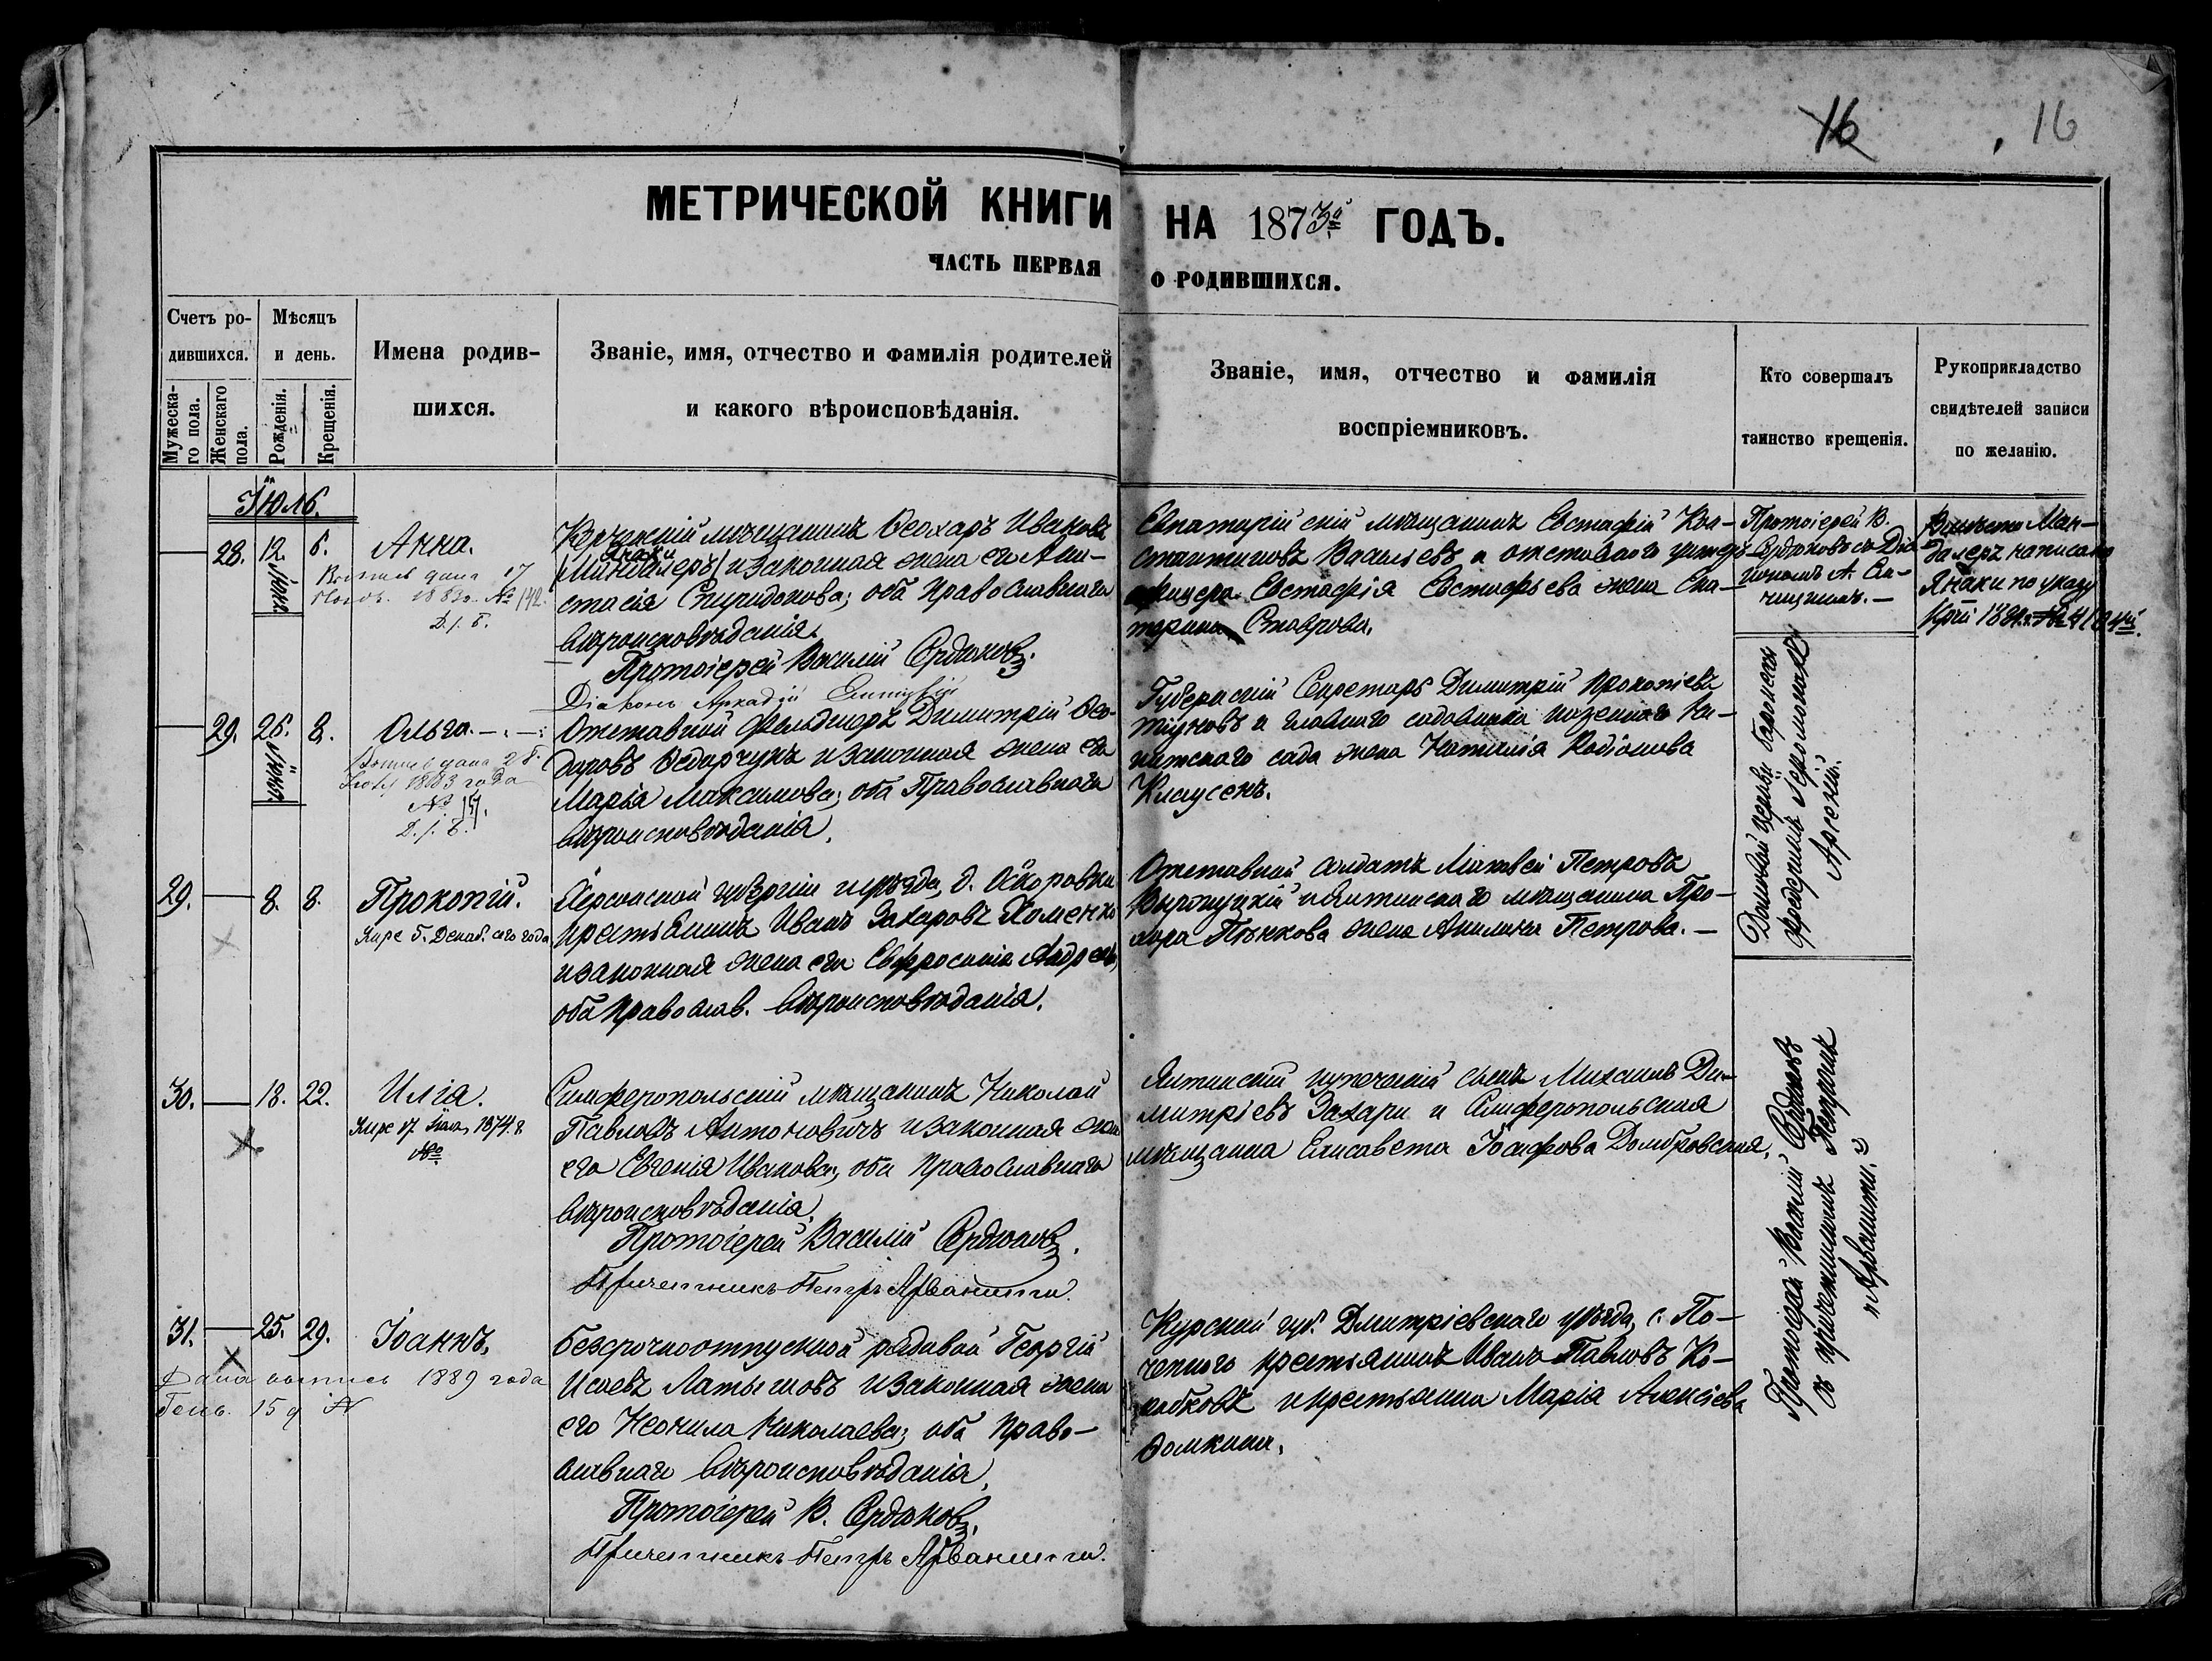 16
16
МЕТРИЧЕСКОЙ КНИГИ НА 1873й ГОДЪ.
ЧАСТЬ ПЕРВАЯ О РОДИВШИХСЯ.
Счетъ ро-
дившихся.
Мужеска-
го пола.
Женскаго
пола.
Мѣсяцъ
и день.
Рожденія.
Крещенія.
Имена родив-
шихся.
Званіе, имя, отчество и фамилія родителей
и какого вѣроисповѣданія.
Званіе, имя, отчество и фамилія
воспріемниковъ.
Кто совершалъ
таинство крещенія.
Рукоприкладство
свидѣтелей записи
по желанію.
Іюль.
28. 12. 6. Анна.
1883 № 142.
мѣщанинъ Ѳеохаръ Ивановъ
и законная жена его Ана-
стасія Спиридонова; оба православнаго
вѣроисповѣданія.
Протоіерей Василій Сердюковъ.
Діаконъ Аркадій
Евпаторійскій мѣщанинъ Евстафій Кон-
стантиновъ Васильевъ и отставного унтеръ-
офицера Евстафія Евстафьева жена Ека-
терина Ставрова.
Протоіерей В.
Сердюковъ съ Діа-
кономъ А.
Вмѣсто Ман-
далеръ написано
Янаки по указу
29. 26. 8. Ольга.
1883 года
№
Отставной фельдшеръ Димитрій Ѳео-
доровъ Ѳедорчукъ и законная жена его
Марія Максимова; оба Православнаго
вѣроисповѣданія.
Губернскій Секретарь Димитрій Прокопіевъ
и главнаго садовника казеннаго Ни-
китскаго сада жена Наталія Родіонова
Клаусенъ.
Домовой церкви баронессы
Фредериксъ Іеромонахъ
Арсеній.
29. 8. 8. Прокопій.
Умре 5. Декаб. сего года
Херсонской губерніи и уѣзда, д.
крестьянинъ Иванъ Захаровъ Хоменко
и законная жена его Евфросинія Андреева,
оба Православ. вѣроисповѣданія.
Отставной солдатъ Матвей Петровъ
и Ялтинскаго мѣщанина Про-
хора Пѣнкова жена Акилина Петрова.
30. 18. 22. Илія.
Умре 17. 1874 г.
№
Симферопольскій мѣщанинъ Николай
Павловъ Антоновичъ и законная жена
его Евгенія Иванова; оба православнаго
вѣроисповѣданія.
Протоіерей Василій Сердюковъ.
Причетникъ Петръ Арванити.
Ялтинскій купеческій сынъ Михаилъ Ди-
митріевъ Захари и Симферопольская
мѣщанка Елисавета Іосифова Домбровская.
Протоіерей Василій Сердюковъ
съ причетникомъ Петромъ
Арванити.
31. 25. 29. Іоаннъ.
Дана выпись 1889 года
Безсрочноотпускной рядовой Георгій
Исаевъ Латышовъ и законная жена
его Неонила Николаева; оба Право-
славнаго вѣроисповѣданія.
Протоіерей В. Сердюковъ.
Причетникъ Петръ Арванити.
Курской губ. Дмитріевскаго уѣзда, с. По-
крестьянинъ Иванъ Павловъ
и крестьянка Марія Алексіева
Ѳомкина.